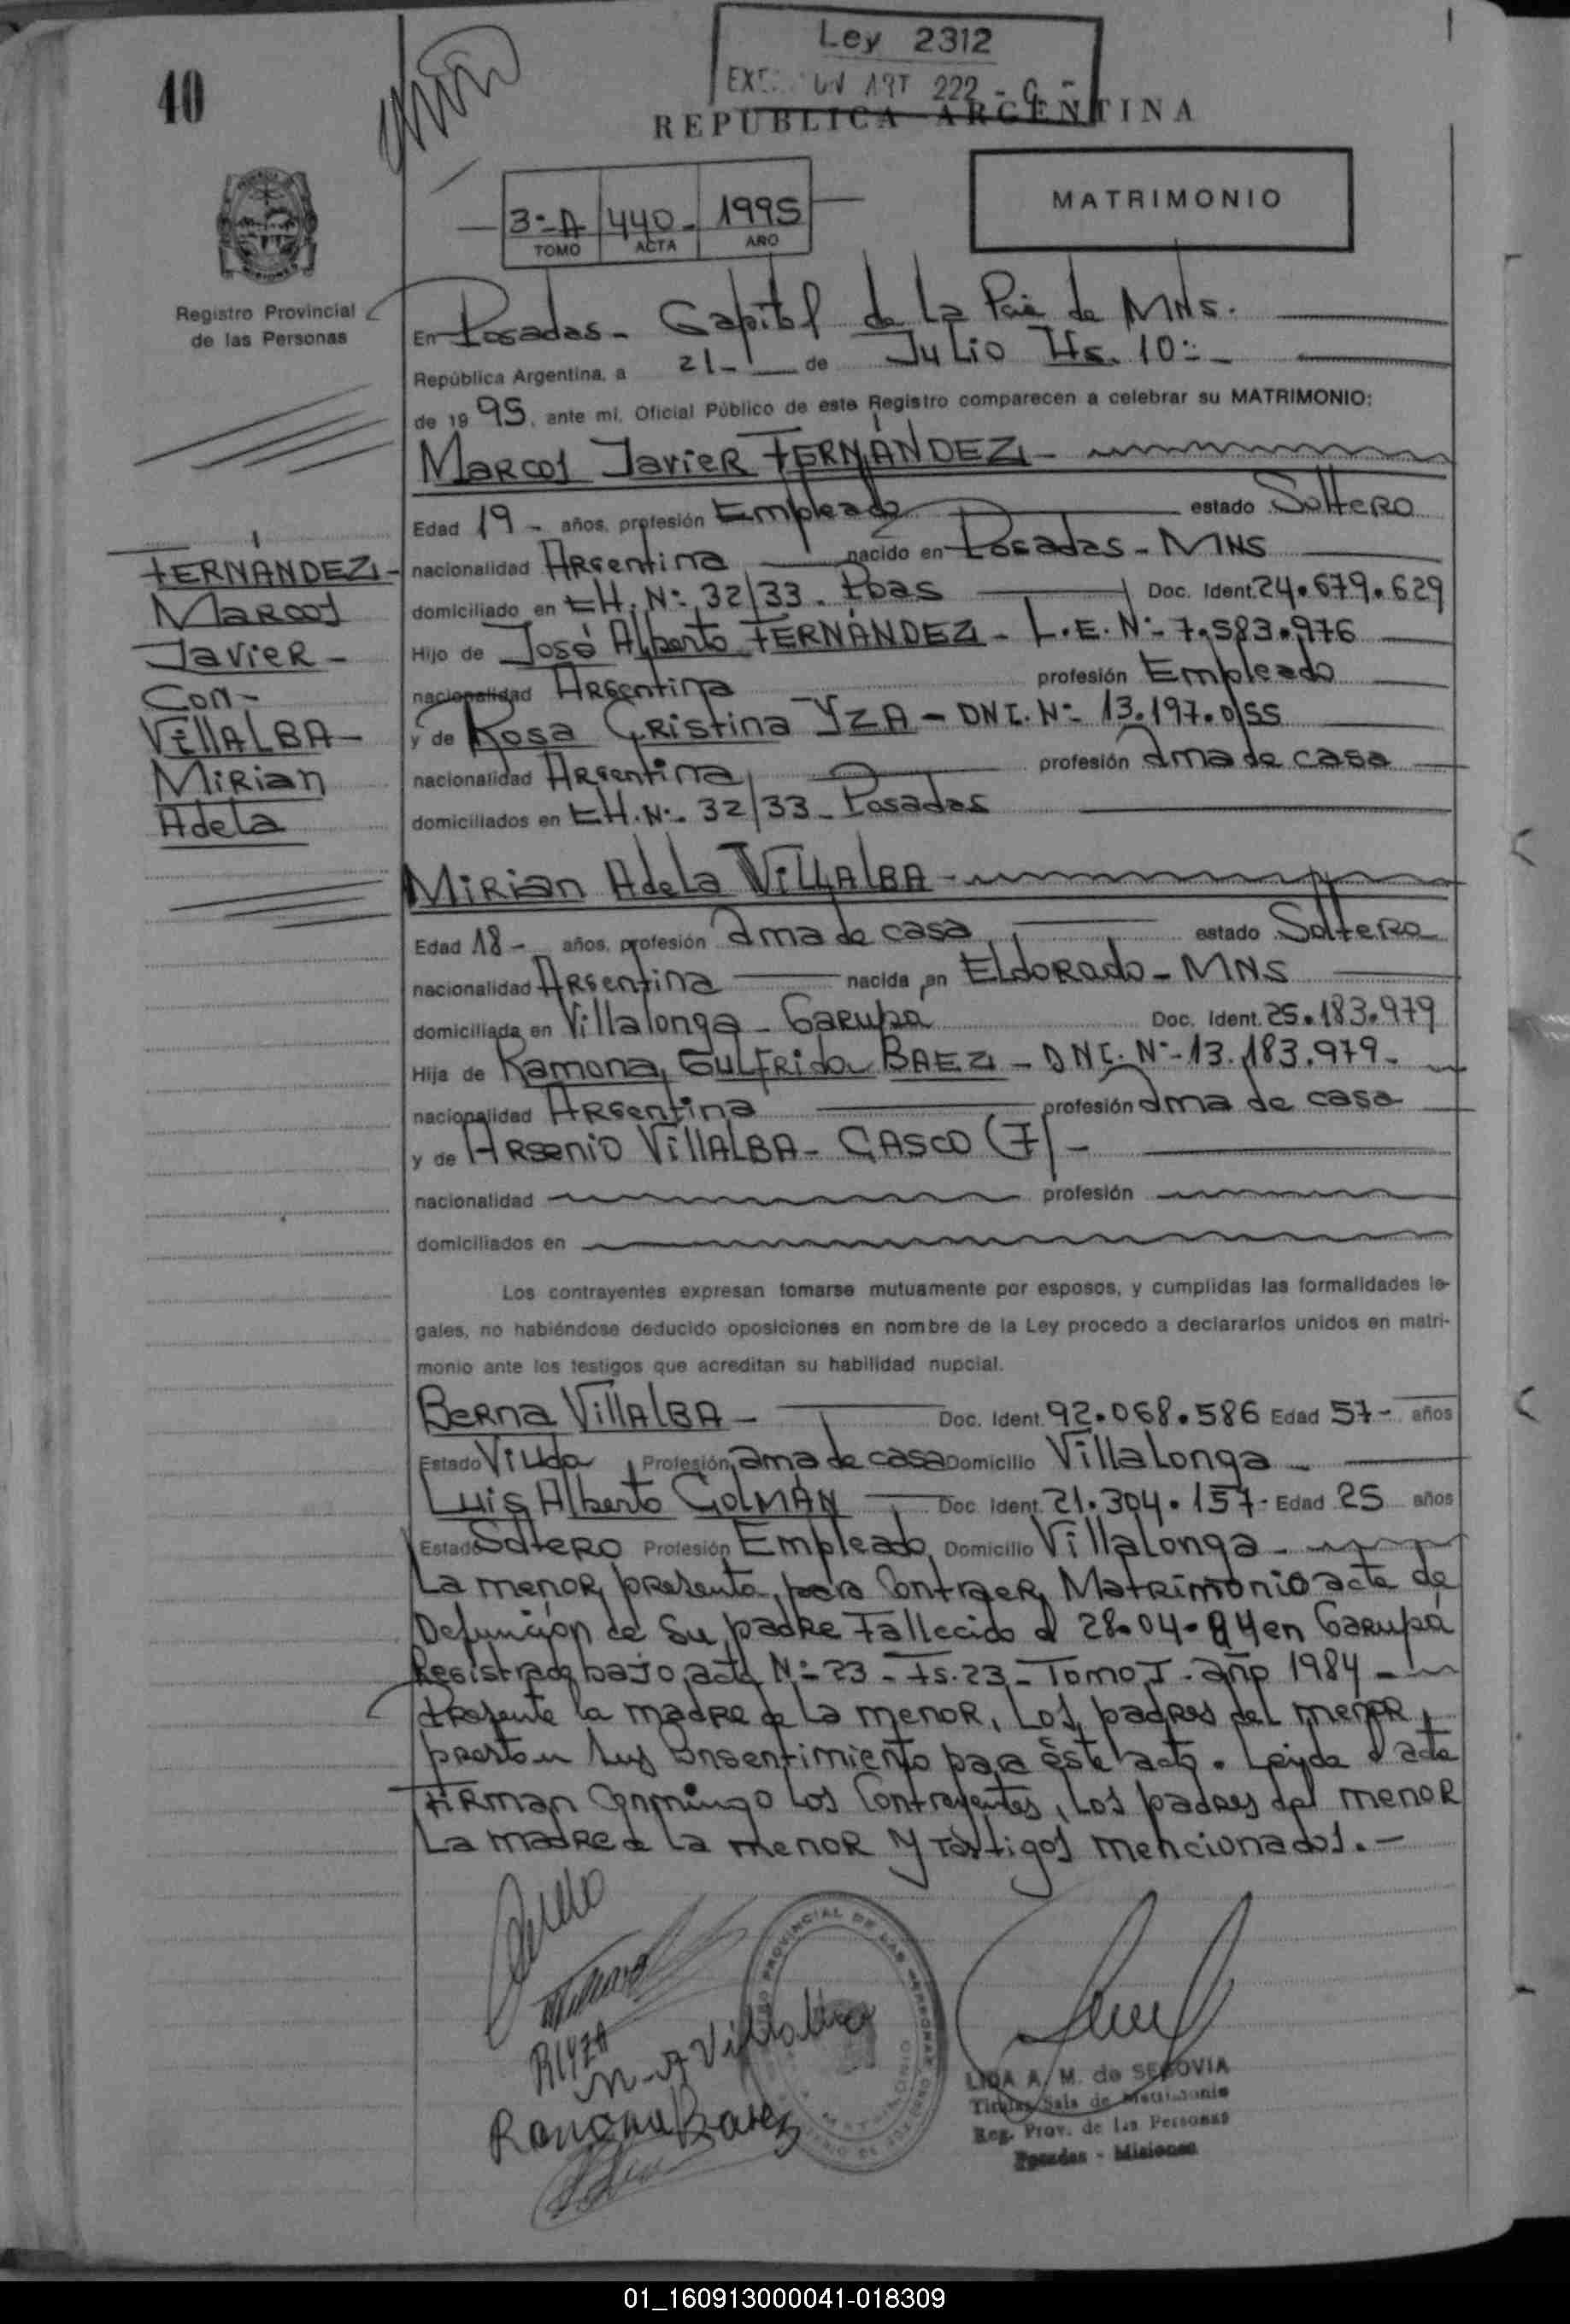 Ley 2312
ART 222
40
REPUBLICA ARGENTINA
3º-A 440- 1995
TOMO ACTA AÑO
MATRIMONIO
Registro Provincial
de las Personas
En Posadas- Capital de La Pcia de MNS.
República Argentina, a 21- de Julio Hs. 10:-
de 1995, ante mí, Oficial Público de este Registro comparecen a celebrar su MATRIMONIO:
Marcos Javier FERNÁNDEZ-
Edad 19- años, profesión Empleado estado Soltero
nacionalidad Argentina nacido en Posadas- MNS
domiciliado en CH. Nº- 32/33. Pdas Doc. Ident. 24.679.629
Hijo de José Alberto FERNÁNDEZ- L.E. Nº- 7.583.976
nacionalidad Argentina profesión Empleado
y de Rosa Cristina YZA- DNI. Nº- 13.197.055
nacionalidad Argentina profesión Ama de casa
domiciliados en CH. Nº- 32/33- Posadas
FERNÁNDEZ-
Marcos
Javier-
Con-
VillALBA-
Mirian
Adela
Mirian Adela VillALBA-
Edad 18- años, profesión Ama de casa estado Soltera
nacionalidad Argentina nacida en Eldorado- MNS
domiciliada en Villalonga- Garupa Doc. Ident. 25.183.979
Hija de Ramona Gulfrida BAEZ- DNI. Nº- 13.183.979-
nacionalidad Argentina profesión Ama de casa
y de Arsenio VillALBA- GASCO (F)-
nacionalidad profesión
domiciliados en
Los contrayentes expresan tomarse mutuamente por esposos, y cumplidas las formalidades le-
gales, no habiéndose deducido oposiciones en nombre de la Ley procedo a declararlos unidos en matri-
monio ante los testigos que acreditan su habilidad nupcial.
Berna VillALBA- Doc. Ident. 92.068.586 Edad 57- años
Estado Viuda Profesión ama de casa Domicilio Villalonga-
Luis Alberto GOLMÁN Doc. Ident. 21.304.157- Edad 25 años
Estado Soltero Profesión Empleado Domicilio Villalonga-
La menor, presenta, para Contraer Matrimonio acta de
Defunción de su padre Fallecido el 28-04-84 en Garupá
Registrada bajo acta Nº- 23- Fs. 23- Tomo I- año 1984-
Presente la madre de la menor, Los padres del menor,
prestan sus Consentimiento para éste acto. Leída el acta
Firman Conmingo Los Contrayentes, Los padres del menor
La madre de La menor y Testigos mencionados.-
R YZA
M-A Villalba
Ramona Baez
LIDA A. M. de SEGOVIA
Titular Sala de Matrimonio
Reg. Prov. de las Personas
Posadas - Misiones
01_160913000041-018309